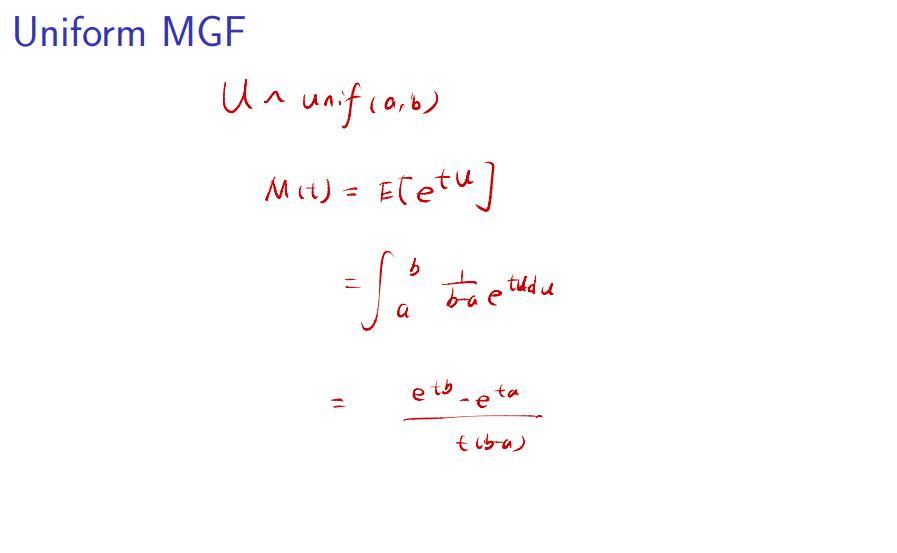 Uniform MGF
U ~ unif(a,b)
M(t) = E[e^{tU}]
= ∫_a^b \frac{1}{b-a} e^{tu} du
= \frac{e^{tb} - e^{ta}}{t(b-a)}